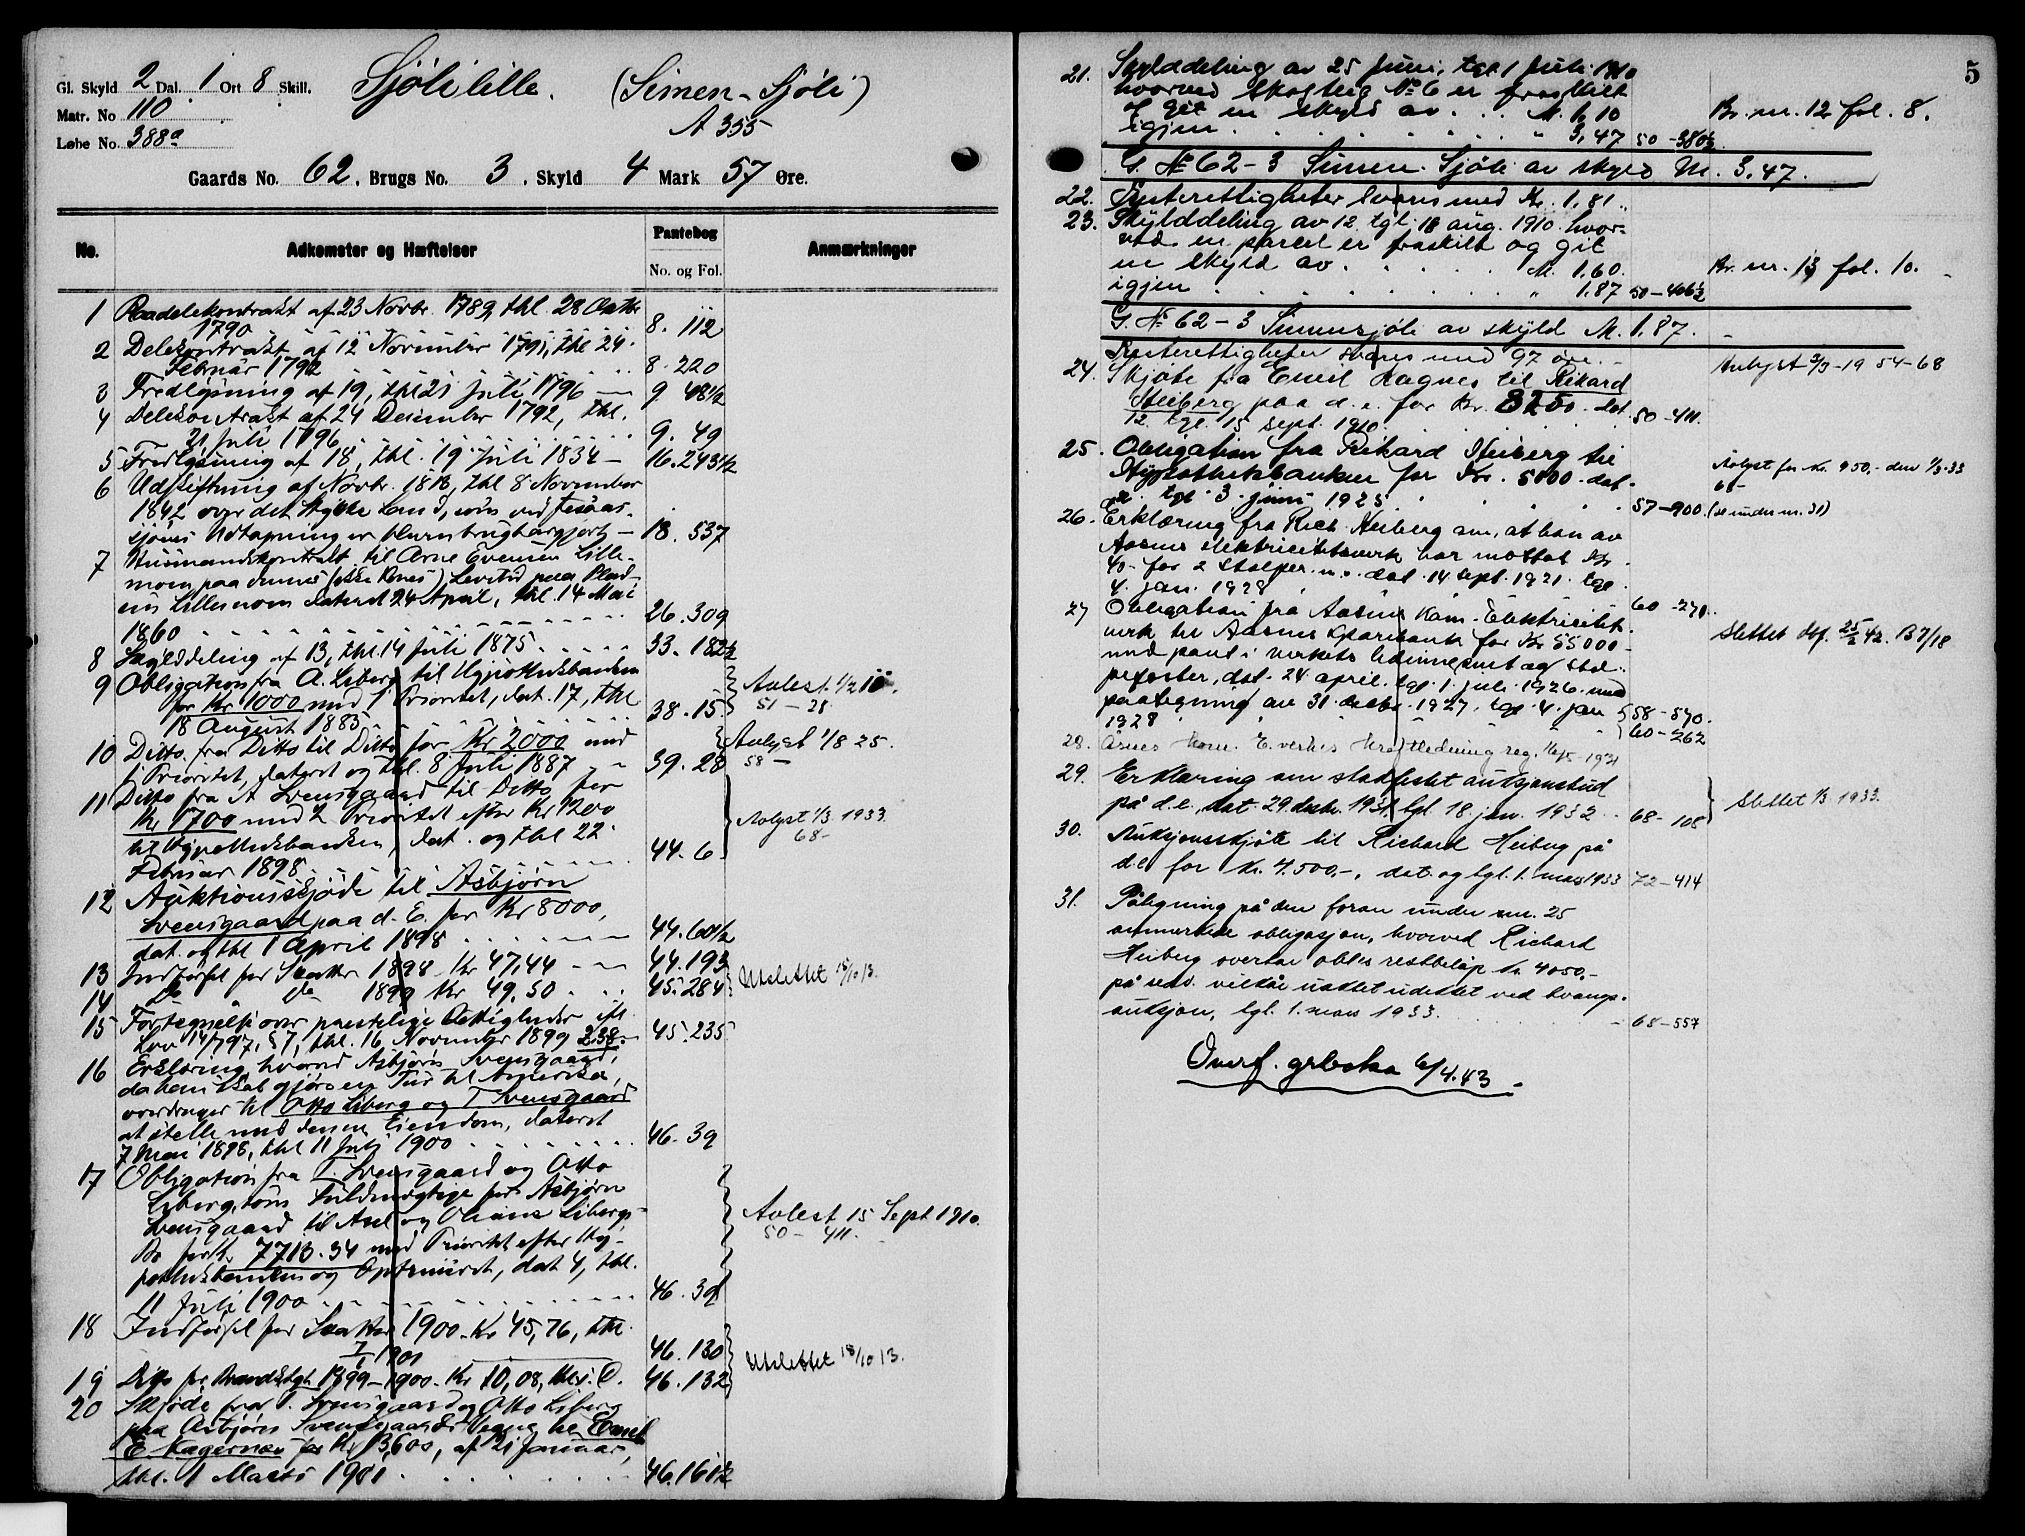 Gl. Skyld 2 Dal. 1 Ort 8 Skill.
Matr. No 110
Løbe No. 388a
Sjöli lille. (Simen-Sjöli)
A 355
Gaards No. 62, Brugs No. 3, Skyld 4 Mark 57 Øre.
No. Adkomster og Hæftelser Pantebog No. og Fol. Anmærkninger
1 Raadelekontrakt af 23 Novbr. 1789, thl. 28 Oktbr
1790 8. 112
2 Delekontrakt af 12 November 1791, thl 24.
Februar 1792 8. 220
3 Fredlysning af 19, thl 21 Juli 1796 9 48½
4 Delekontrakt af 24 December 1792, thl.
21 Juli 1796 9. 49
5 Fredlysning af 18, thl. 19 Juli 1834 16. 243½
6 Udskiftning af Novbr. 1818, thl 8 November
1842 over det Stykke Land, som ved
sjøens Udtapning er blevet brugbargjort 18. 537
7 Husmandskontrakt til Arne Evensen Lille-
mom paa (ikke Kones) Levetid paa Plad-
sen Lillemom dateret 24 April, thl. 14 Mai
1860 26. 309
8 Skylddeling af 13, thl. 14 Juli 1875 33. 182½
9 Obligation fra A. Liberg til Hypothekbanken
for Kr 1000 med 1 Prioritet, dat. 17, thl
18 August 1885 38. 15. Avlest 1/2 10. 51-28
10 Ditto fra Ditto til Ditto for Kr 2000 med
1 Prioritet, dateret og thl. 8 Juli 1887 39. 28 Avlyst 1/8 25. 58-
11 Ditto fra A Svensgaard til Ditto for
Kr 1700 med 2 Prioritet efter Kr 1200
til Hypothekbanken, dat. og thl 22
Februar 1898 44. 6 Avlyst 1/3 1933. 68-
12 Auktionsskjøde til Asbjørn
Svensgaard paa d. E. for Kr 8000,
dat. og thl 1 April 1898 44. 60½
13 Indførsel for Skatter 1898 Kr 47,44 44. 193
14 Do do 1899 Kr 49.50 45. 284 Utslettet 18/10 13.
15 Fortegnelse over panteligе Rettigheder ifl.
Lov 14/7 97, § 7, thl. 16 November 1899 2.38 45. 235
16 Erklæring, hvorved Asbjørn Svensgaard,
da han skal gjøre en Tur til Amerika,
overdrager til Otto Liberg og T Svensgaard
at stelle med denne Eiendom, dateret
7 Mai 1898, thl 11 Juli 1900 46. 39
17 Obligation fra T. Svensgaard og Otto
Liberg, som Fuldmægtige for Asbjørn
Svensgaard til Axel og Oliana Libergs
Bo for Kr. 7713.34 med Prioritet efter Hy-
pothekbanken og Opremieret, dat 4, thl.
11 Juli 1900 46. 39 Avlest 15 Sept 1910. 50-411.
18 Indførsel for Skatter 1900 Kr 45,76, thl.
1901 46. 130
19 Ditto for Brandktgt 1899-1900. Kr 10,08, thl i. D. 46. 132 Utslettet 18/10 13.
20 Skjøde fra T. Svensgaard og Otto Liberg
paa Asbjørn Svensgaards Vegne til Emil
E. Kagernæs for Kr 13,600, af 21 Januar,
thl. 1 Marts 1901 46. 161½
5
21. Skylddeling av 25 juni, tgl 1 juli 1910
hvorved Skogteig No 6 er fraskilt
og git en skyld av M. 1,10 Br. nr. 12 fol. 8.
igjen " 3,47 50-380½
G. No 62-3 Simen-Sjöli av skyld M. 3.47.
22. Grusterettigheter svares med Kr. 1,81.
23. Skylddeling av 12 tgl. 18 aug. 1910. hvor-
ved en parcel er fraskilt og git
en skyld av M. 1,60. Br. nr. 13 fol. 10.
igjen " 1,87 50-406½
G. No 62-3 Simensjöli av skyld M. 1,87.
Grusterettigheter svares med 97 øre.
24. Skjøte fra Emil Kagnes til Rikard
Heiberg paa d. e. for Kr. 8250. dat.
12. tgl. 15 sept. 1910 50-411. Avlyst 3/3-19 54-68
25. Obligation fra Rikard Heiberg til
Hypothekbanken for Kr. 5000. dat.
2. tgl. 3. juni 1925 57-900. (se under nr. 31) Avlyst for kr. 950,- den 1/3-33 68-
26. Erklæring fra Rich. Heiberg om, at han av
Aasnes elektricitetsverk har mottat Kr.
40- for 2 stolper m.v. dat. 14 sept. 1921. tgl.
4. jan. 1928 60-270.
27 Obligation fra Aasnes Kom. Elektricitet-
verk til Aasnes Sparebank for Kr 55000-
med pant i verkets ledningsnet og stol-
pefester, dat. 24 april. tgl. 1. juli. 1926. med
paategning av 31. decbr. 1927. tgl. 4. jan 58-570.
1928 60-262 Slettet dsf. 25/2 42. B7/18
28. Åsnes Kom. E.verkes Kraftledning reg. 16/5-1931
29. Erklæring om stadfestet auksjonsbud
på d.e., dat. 29. desbr. 1931, tgl. 18. jan. 1932 68-108 Slettet 1/3 1933.
30. Auksjonsskjøte til Richard Heiberg på
d.e. for Kr. 4.500,-, dat. og tgl. 1. mars 1933 72-414
31. Påtegning på den foran under nr. 25
anmerkede obligasjon, hvorved Richard
Heiberg overtar obl.s restbeløp kr. 4050,-
på vilkår uaktet udekket ved tvangs-
auksjon, tgl. 1. mars 1933. 68-557
Overf. grboka 6/4.43.